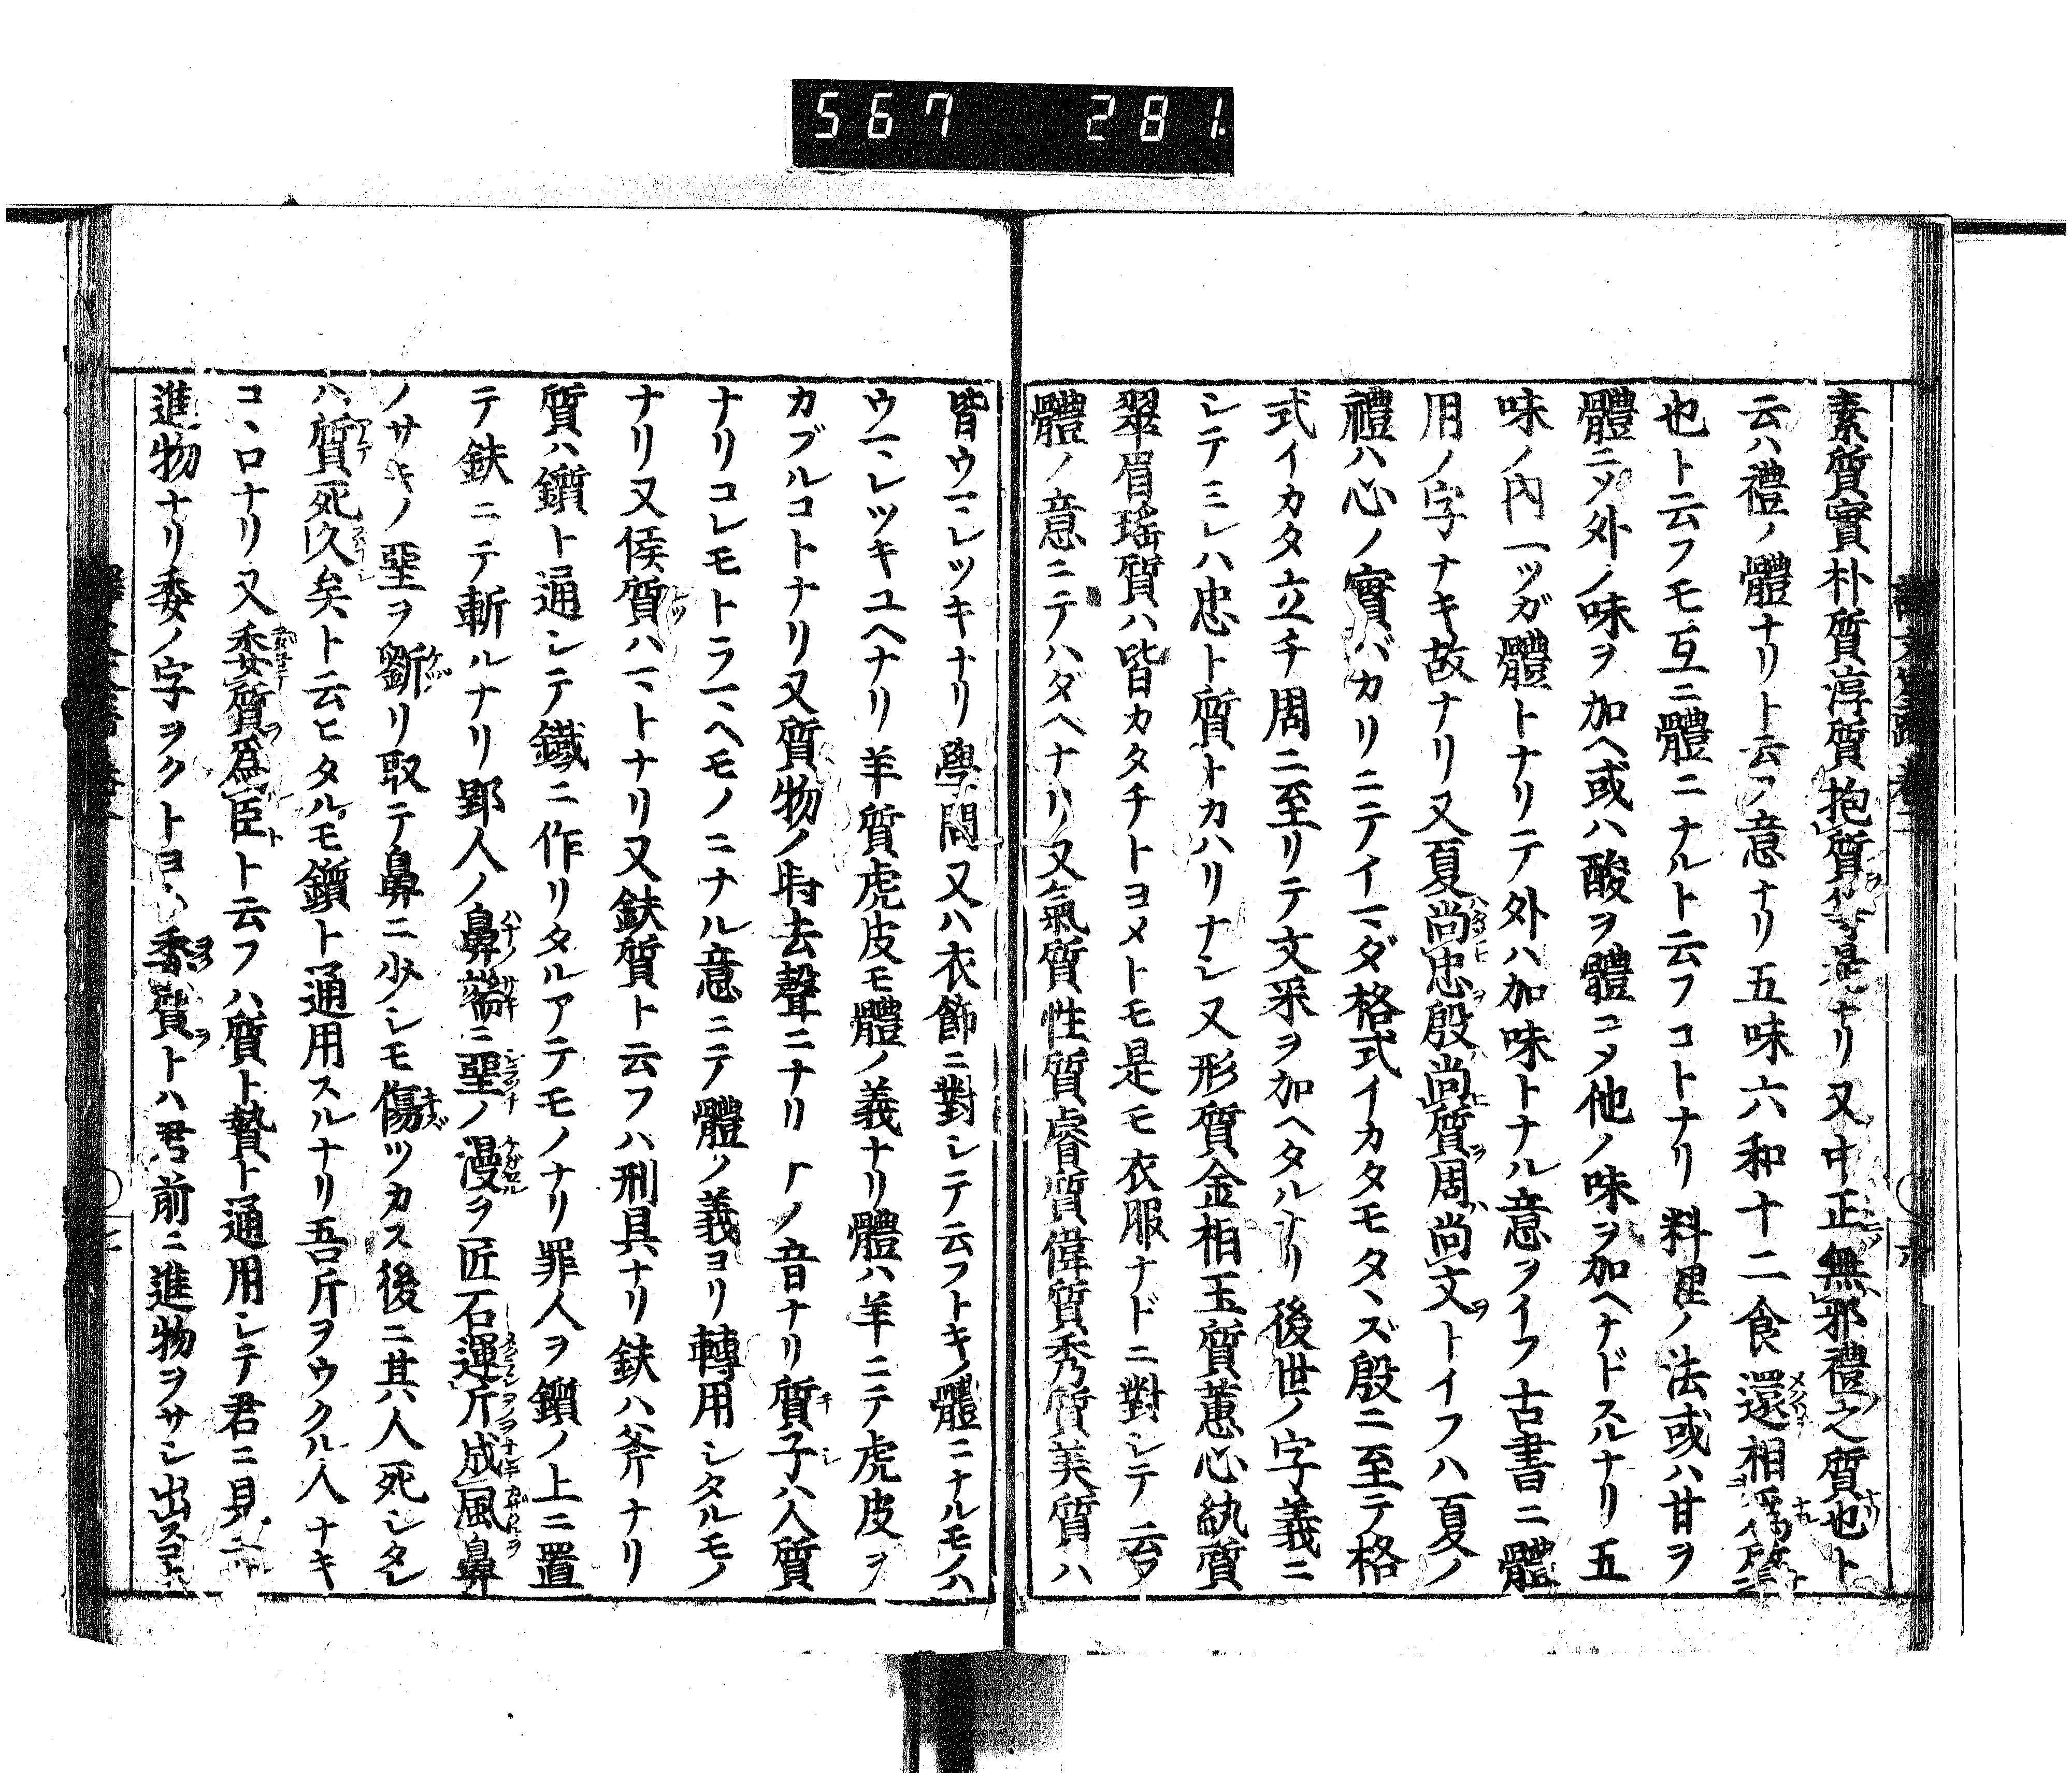 567 281
素質實朴質淳質抱質等是ナリ又中正無邪禮之質也ト
云ハ禮ノ體ナリト云フ意ナリ五味六和十二食還相爲質
也ト云フモ互ニ體ニナルト云フコトナリ料理ノ法或ハ甘ヲ
體ニメ外ノ味ヲ加ヘ或ハ酸ヲ體ニメ他ノ味ヲ加ヘナドスルナリ五
味ノ內一ツガ體トナリテ外ハ加味トナル意ヲイフ古書ニ體
用ノ字ナキ故ナリ又夏尚忠殷尚質周尚文トイフハ夏ノ
禮ハ心ノ實バカリニテイマダ格式イカタモタヽズ殷ニ至テ格
式イカタ立チ周ニ至リテ文采ヲ加ヘタルナリ後世ノ字義ニ
シテミレハ忠ト質トカハリナシ又形質金相玉質蕙心紈質
翠眉瑤質ハ皆カタチトヨメトモ是モ衣服ナドニ對シテ云フ
體ノ意ニテハダヘナリ又氣質性質睿質偉質秀質美質ハ
皆ウマレツキナリ學問又ハ衣飾ニ對シテ云フトキノ體ニナルモノハ
ウマレツキユヘナリ羊質虎皮モ體ノ義ナリ體ハ羊ニテ虎皮ヲ
カブルコトナリ又質物ノ時去聲ニナリ ノ音ナリ質子ハ人質
ナリコレモトラマヘモノニナル意ニテ體ノ義ヨリ轉用シタルモノ
ナリ又侯質ハマトナリ又鈇質ト云フハ刑具ナリ鈇ハ斧ナリ
質ハ鑕ト通シテ鐵ニ作リタルアテモノナリ罪人ヲ鑕ノ上ニ置
テ鈇ニテ斬ルナリ郢人ノ鼻端ニ堊ノ漫ヲ匠石運斤成風鼻
ノサキノ堊ヲ斵リ取テ鼻ニ少シモ傷ツカス後ニ其人死シタレ
ハ質死久矣ト云ヒタルモ鑕ト通用スルナリ吾斤ヲウクル人ナキ
コヽロナリ又委質爲臣ト云フハ質ト贄ト通用シテ君ニ見ニ
進物ナリ委ノ字ヲクトヨ 委質トハ君前ニ進物ヲサシ出スコト